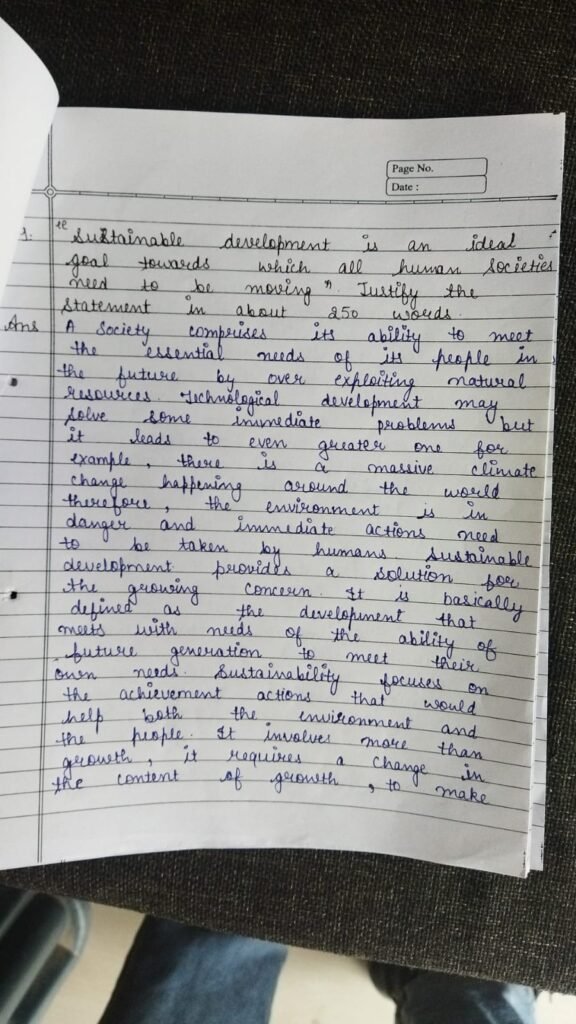 Page No.
Date :
1. "Sustainable development is an ideal
goal towards which all human societies
need to be moving". Justify the
statement in about 250 words.
Ans A society comprises its ability to meet
the essential needs of its people in
the future by over exploiting natural
resources. Technological development may
solve some immediate problems but
it leads to even greater one for
example, there is a massive climate
change happening around the world
therefore, the environment is in
danger and immediate actions need
to be taken by humans. Sustainable
development provides a solution for
the growing concern. It is basically
defined as the development that
meets with needs of the ability of
future generation to meet their
own needs. Sustainability focuses on
the achievement actions that would
help both the environment and
the people. It involves more than
growth, it requires a change in
the content of growth, to make